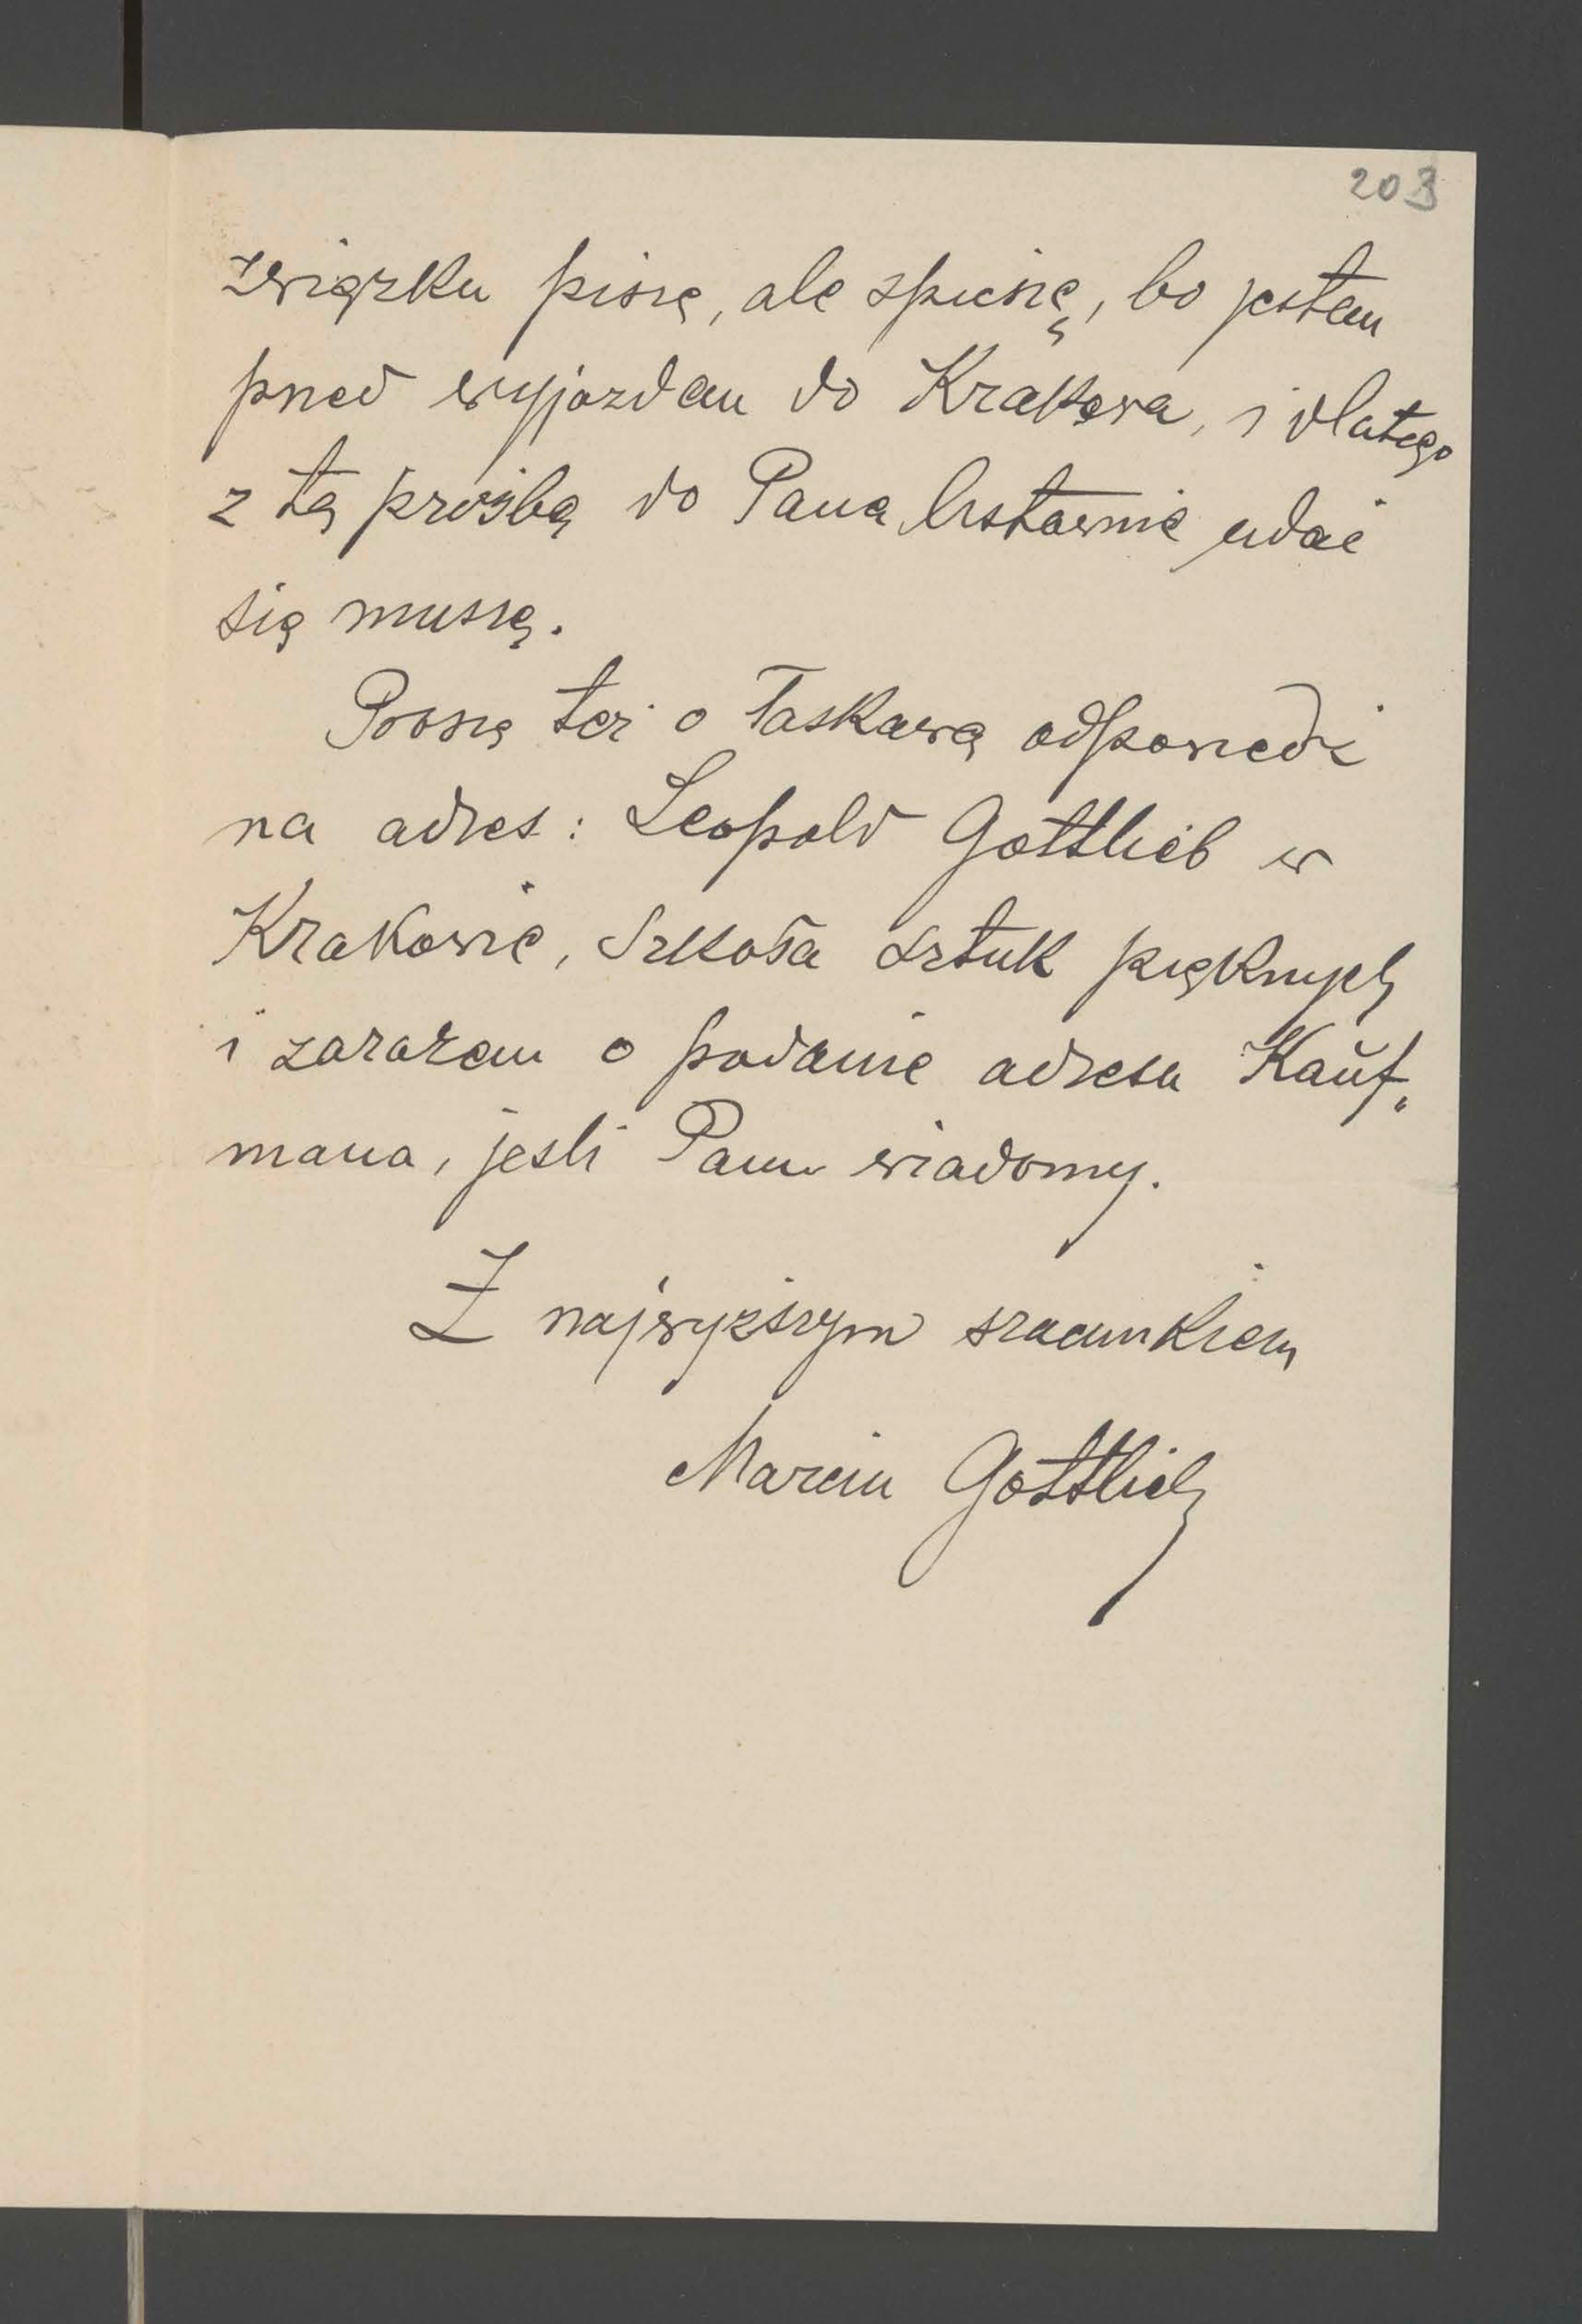 203
związku piszę, ale spieszę, bo jestem
przed wyjazdem do Krakowa, i dlatego
z tą prośbą do Pana listownie udać
się muszę.
Proszę też o łaskawą odpowiedź
na adres: Leopold Gottlieb w
Krakowie, Szkoła sztuk pięknych
i zarazem o podanie adresu Kauf„
mana, jeśli Panu wiadomy.
Z najwyższym szacunkiem
Marcin Gottlieb